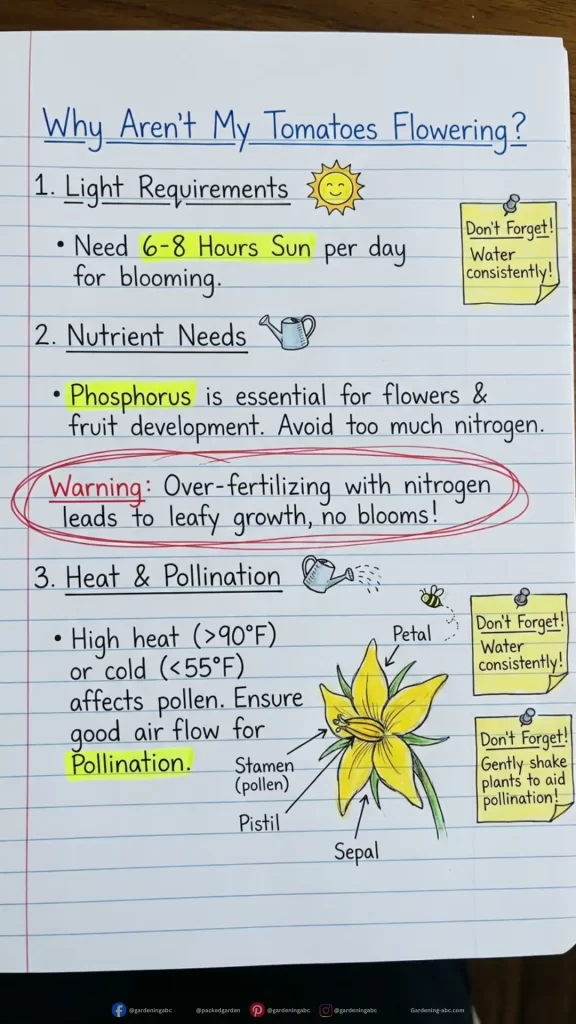 Why Aren't My Tomatoes Flowering?
1. Light Requirements
• Need 6-8 Hours Sun per day
for blooming.
Don't Forget!
Water
consistently!
2. Nutrient Needs
• Phosphorus is essential for flowers &
fruit development. Avoid too much nitrogen.
Warning: Over-fertilizing with nitrogen
leads to leafy growth, no blooms!
3. Heat & Pollination
• High heat (>90°F)
or cold (<55°F)
affects pollen. Ensure
good air flow for
Pollination.
Petal
Stamen
(pollen)
Pistil
Sepal
Don't Forget!
Water
consistently!
Don't Forget!
Gently shake
plants to aid
pollination!
@gardeningabc @packedgarden @gardeningabc @gardeningabc Gardening-abc.com